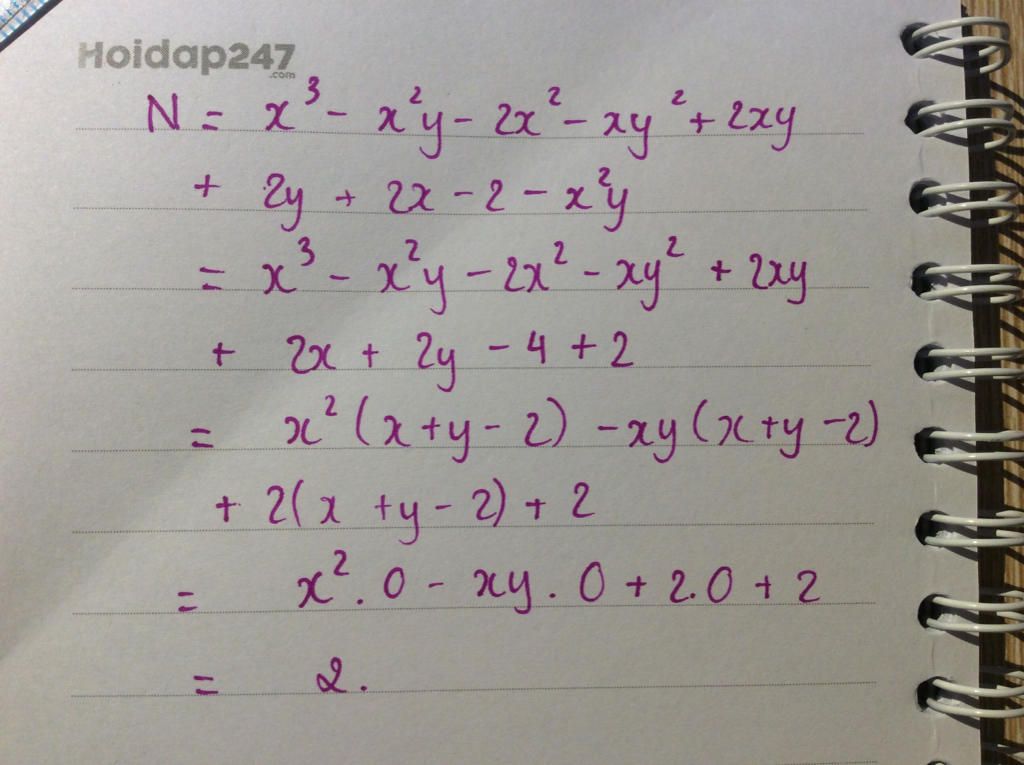 Hoidap247
.com
N = x³ - x²y - 2x² - xy² + 2xy
+ 2y + 2x - 2 - x²y
= x³ - x²y - 2x² - xy² + 2xy
+ 2x + 2y - 4 + 2
= x² (x+y - 2) - xy (x+y - 2)
+ 2(x + y - 2) + 2
= x² . 0 - xy . 0 + 2.0 + 2
= 2.